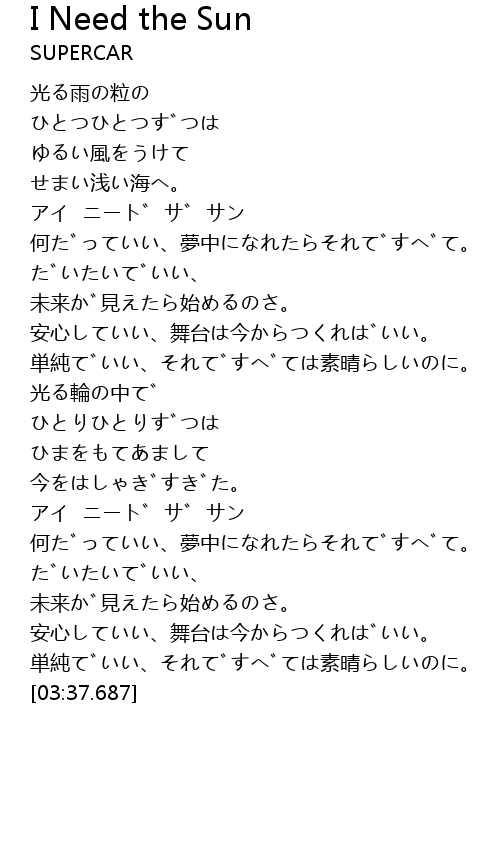 I Need the Sun
SUPERCAR
光る雨の粒の
ひとつひとつずつは
ゆるい風をうけて
せまい浅い海へ。
アイ ニード ザ サン
何だっていい、夢中になれたらそれですべて。
だいたいでいい、
未来が見えたら始めるのさ。
安心していい、舞台は今からつくればいい。
単純でいい、それですべては素晴らしいのに。
光る輪の中で
ひとりひとりずつは
ひまをもてあまして
今をはしゃぎすぎた。
アイ ニード ザ サン
何だっていい、夢中になれたらそれですべて。
だいたいでいい、
未来が見えたら始めるのさ。
安心していい、舞台は今からつくればいい。
単純でいい、それですべては素晴らしいのに。
[03:37.687]